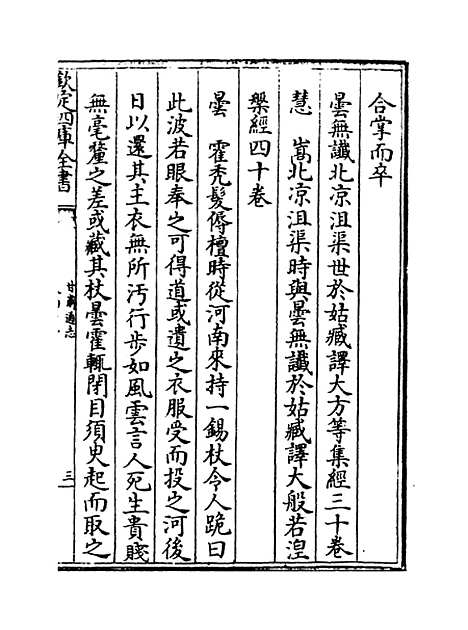 合掌而卒
曇無讖北凉沮渠世於姑臧譯大方等集經三十卷
慧　嵩北凉沮渠時與曇無讖於姑臧譯大般若湼
槃經四十卷
曇　霍秃髮傉檀時從河南來持一錫杖令人跪曰
此波若眼奉之可得道或遺之衣服受而投之河後
日以還其主衣無所汚行步如風雲言人死生貴賤
無毫釐之差或藏其杖曇霍輒閉目須臾起而取之
欽定四庫全書
甘肅通志
三